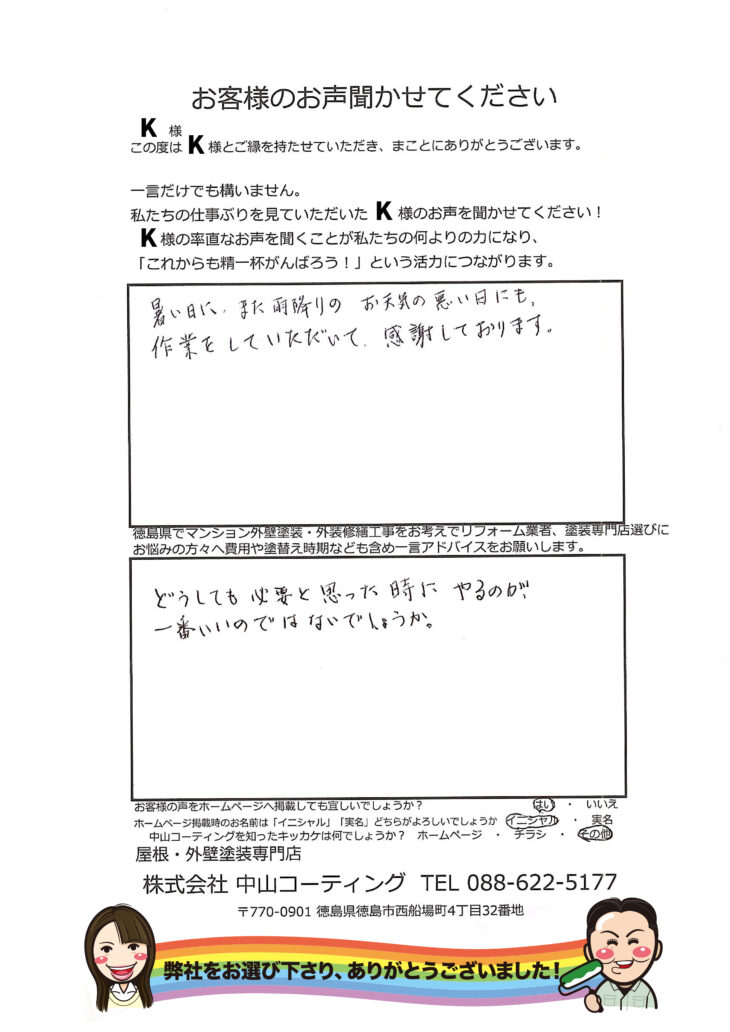 お客様のお声聞かせてください
K 様
この度は K 様とご縁を持たせていただき、まことにありがとうございます。
一言だけでも構いません。
私たちの仕事ぶりを見ていただいた K 様のお声を聞かせてください！
K 様の率直なお声を聞くことが私たちの何よりの力になり、
「これからも精一杯がんばろう！」という活力につながります。
暑い日に、また雨降りの お天気の悪い日にも、
作業をしていただいて、感謝しております。
徳島県でマンション外壁塗装・外装修繕工事をお考えでリフォーム業者、塗装専門店選びに
お悩みの方々へ費用や塗替え時期なども含め一言アドバイスをお願いします。
どうしても必要と思った時に やるのが、
一番いいのではないでしょうか。
お客様の声をホームページへ掲載しても宜しいでしょうか？ はい ・ いいえ
ホームページ掲載時のお名前は「イニシャル」「実名」どちらがよろしいでしょうか イニシャル ・ 実名
中山コーティングを知ったキッカケは何でしょうか？ ホームページ ・ チラシ ・ その他
屋根・外壁塗装専門店
株式会社 中山コーティング TEL 088-622-5177
〒770-0901 徳島県徳島市西船場町4丁目32番地
弊社をお選び下さり、ありがとうございました！